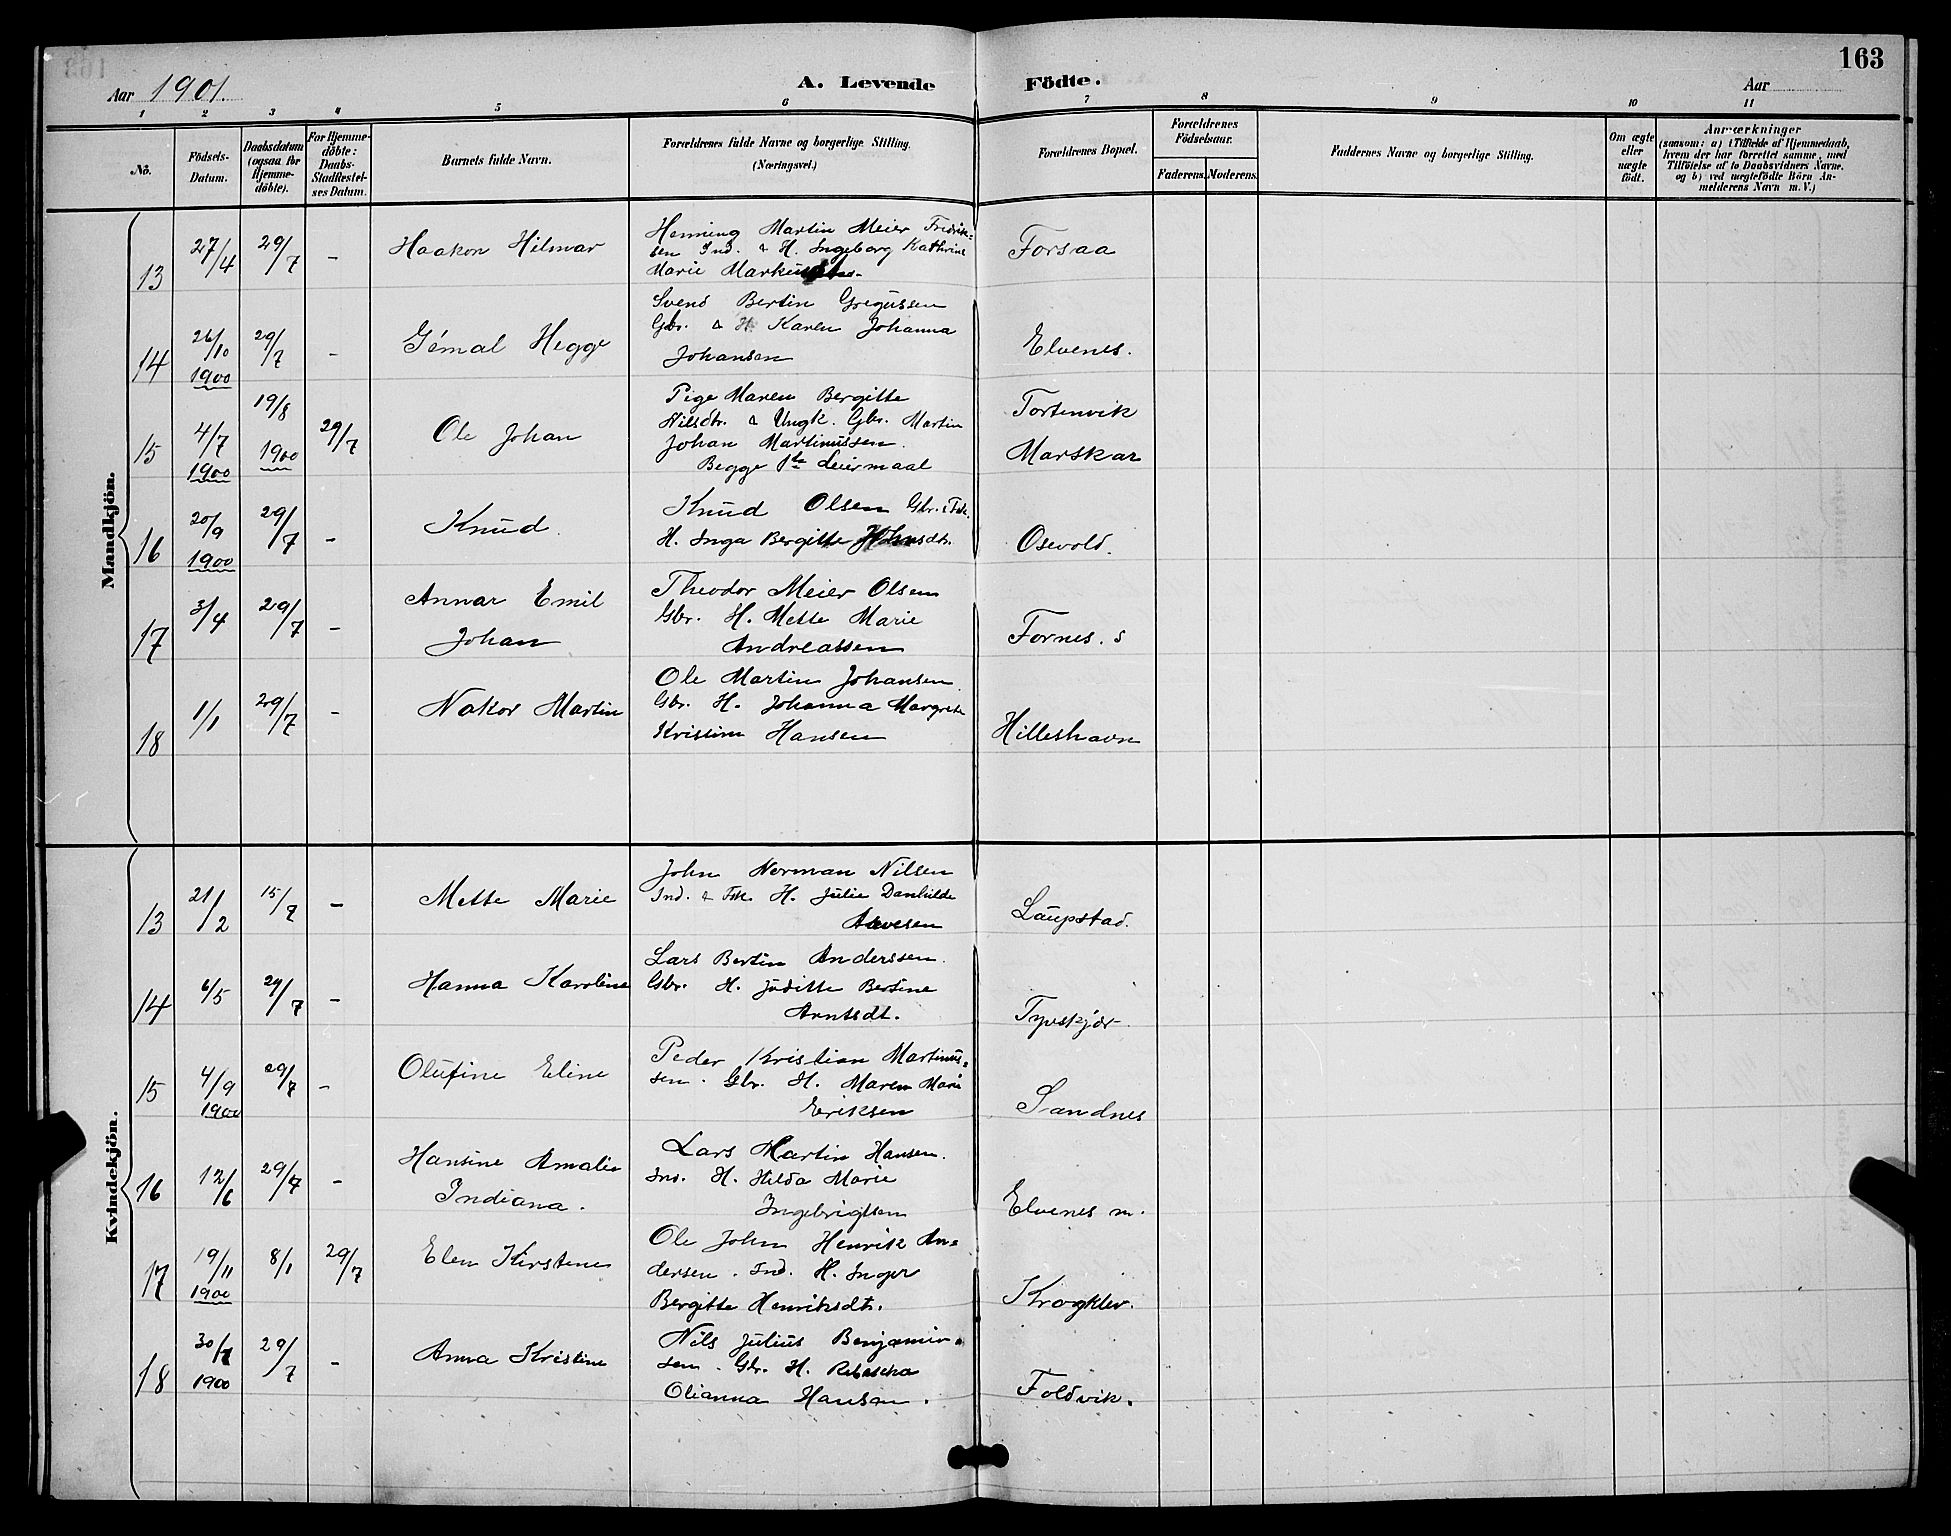 163
Aar 1901. A. Levende Födte. Aar
1 2 3 4 5 6 7 8 9 10 11
No. Födsels-Datum. Daabsdatum (ogsaa for Hjemme-döbte). For Hjemme-döbte: Daabs-Stadfæstel-ses Datum. Barnets fulde Navn. Forældrenes fulde Navne og borgerlige Stilling. (Næringsvei.) Forældrenes Bopæl. Forældrenes Födselsaar. Faderens. Moderens. Faddernes Navne og borgerlige Stilling. Om ægte eller uægte födt. Anmærkninger (saasom: a) i Tilfælde af Hjemmedaab, hvem der har forrettet samme, med Tilföielse af to Daabsvidners Navne, og b) ved uægtefödte Börn An-melderens Navn m. V.)
Mandkjön.
13 27/4 29/7 - Haakon Hilmar
Henning Martin Meier Fredrik=
sen Ind. & H. Ingeborg Kathrine
Marie
Forsaa
14 26/10 1900 29/7 - Gémal Hegge
Svend Bertin Gregussen
Gbr. & H. Karen Johanna
Johansen
Elvenes.
15 4/7 1900 19/8 1900 29/7 Ole Johan
Pige Maren Bergitte
Nilsdtr. & Ungk. Gbr. Martin
Johan Martinussen.
Begge 1ste Leiermaal
Tortenvik
Marskar
16 20/9 1900 29/7 - Knud.
Knud Olsen Gbr. & Fisk.
H. Inga Bergitte
Osevold.
17 3/4 29/7 - Annar Emil
Johan
Theodor Meier Olsen
Gbr. H. Mette Marie
Andreassen
Fornes. s
18 1/1 29/7 - Nakor Martin
Ole Martin Johansen
Gbr. H. Johanna Margrete
Kristine Hansen
Hilleshavn
Kvindekjön.
13 21/2 15/7 - Mette Marie
John Norman Nilsen
Ind. & Fisk. H. Julie Danhilde
Laupstad.
14 6/5 29/7 - Hanna Karoline
Lars Bertin Anderssen.
Gbr. H. Juditte Bertine
Arntsdt.
Tyveskjær.
15 4/9 1900 29/7 - Olufine Eline
Peder Kristian Martinus=
sen. Gbr. H. Maren Marie
Eriksen
Sandnes
16 12/6 29/7 - Hansine Amalie
Indiana.
Lars Martin Hansen.
Ind. H. Hilda Marie
Ingebrigtsen
Elvenes m.
17 19/11 1900 8/1 29/7 Elen Kirstene
Ole John Henrik An=
dersen. Ind. H. Inger
Bergitte Henriksdtr.
Krogklev.
18 30/7 1900 29/7 - Anna Kristine
Nils Julius Benjamin=
sen. Gbr. H. Rebecka
Olianna Hansen.
Foldvik.